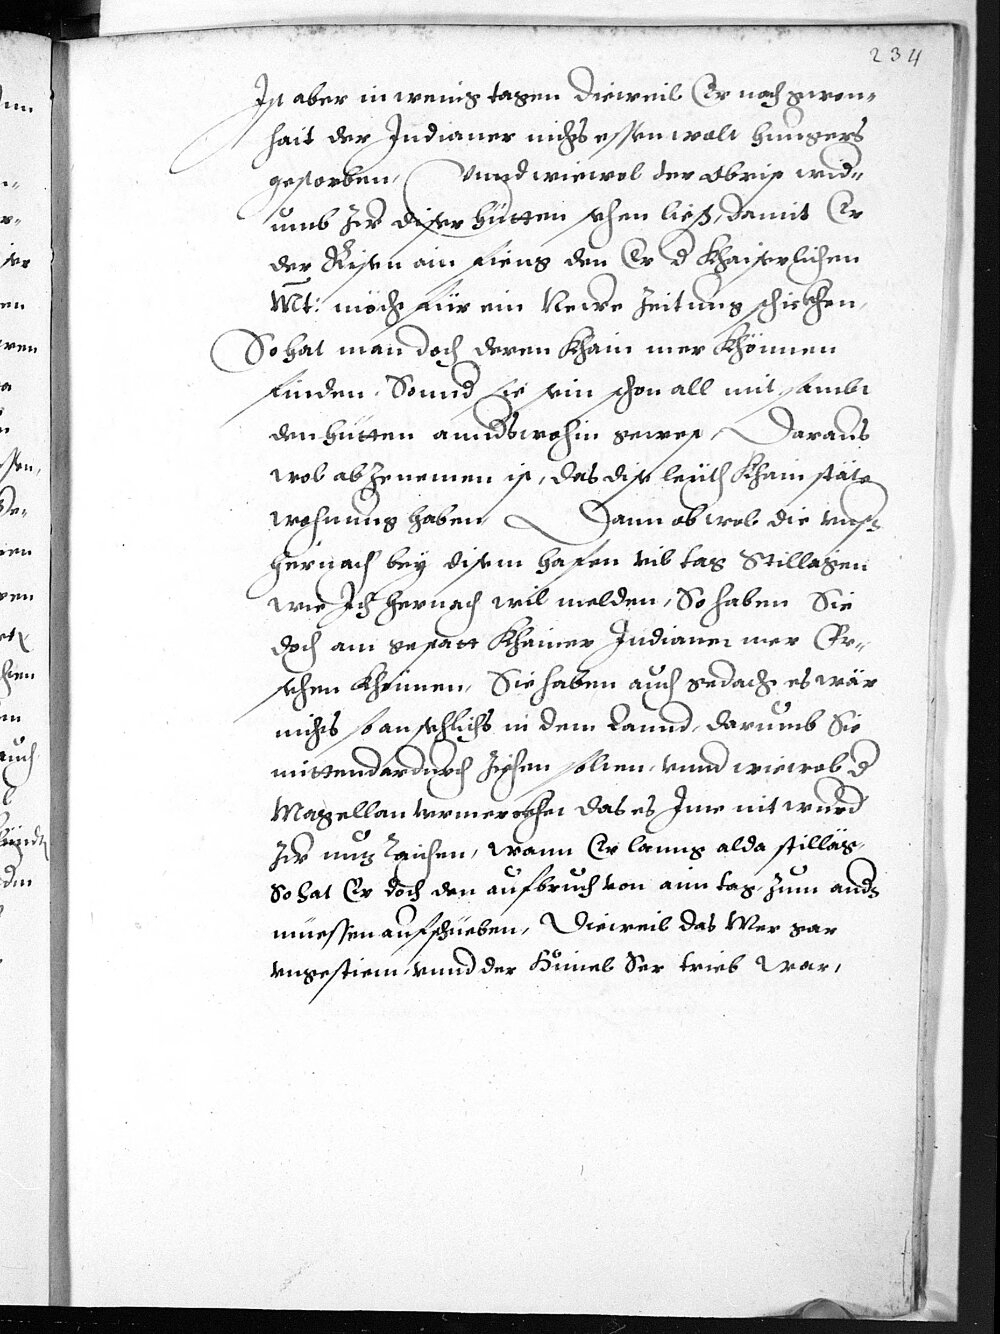 234
Ist aber in wenig tagen dieweil Er nach gwon-
hait der Indianer nichts essen wolt hungers
gestorben, Vnnd wiewol der Obrist wid-
umb Zů diser hütten sehen ließ, damit Er
der Risen ain fieng den Er d Khaiserlichen
Mt: möcht für ein Newe Zeitung schickhen,
So hat man doch deren khain mer khönnen
finden. Sonnd sie sein schon all mit sambt
den hütten anndswohin gewest, Daraus
wol abzenemen ist, das dise leüth khain stäte
wohnung haben, Dann obwol die vnsern
hernach bey disem hafen vil tag Stillagen
wie Ich hernach wil melden, So haben Sie
doch am gestatt khainer Indianer mer Er-
sehen khönnen, Sie haben auch gedacht es wär
nichts so ansehlichs in dem Lannd, darumb Sie
mitten dardurch Ziehen solten, vnnd wiewol d
Magellan vermerckhet das es Ime nit wurd
Zů nutz Raichen, wann Er lanng alda stilläg,
So hat Er doch den aufbruch von aim tag Zum andern
müessen aufschieben, Dieweil das Mer gar
vngestiem, vnnd der Himel Ser trieb war,